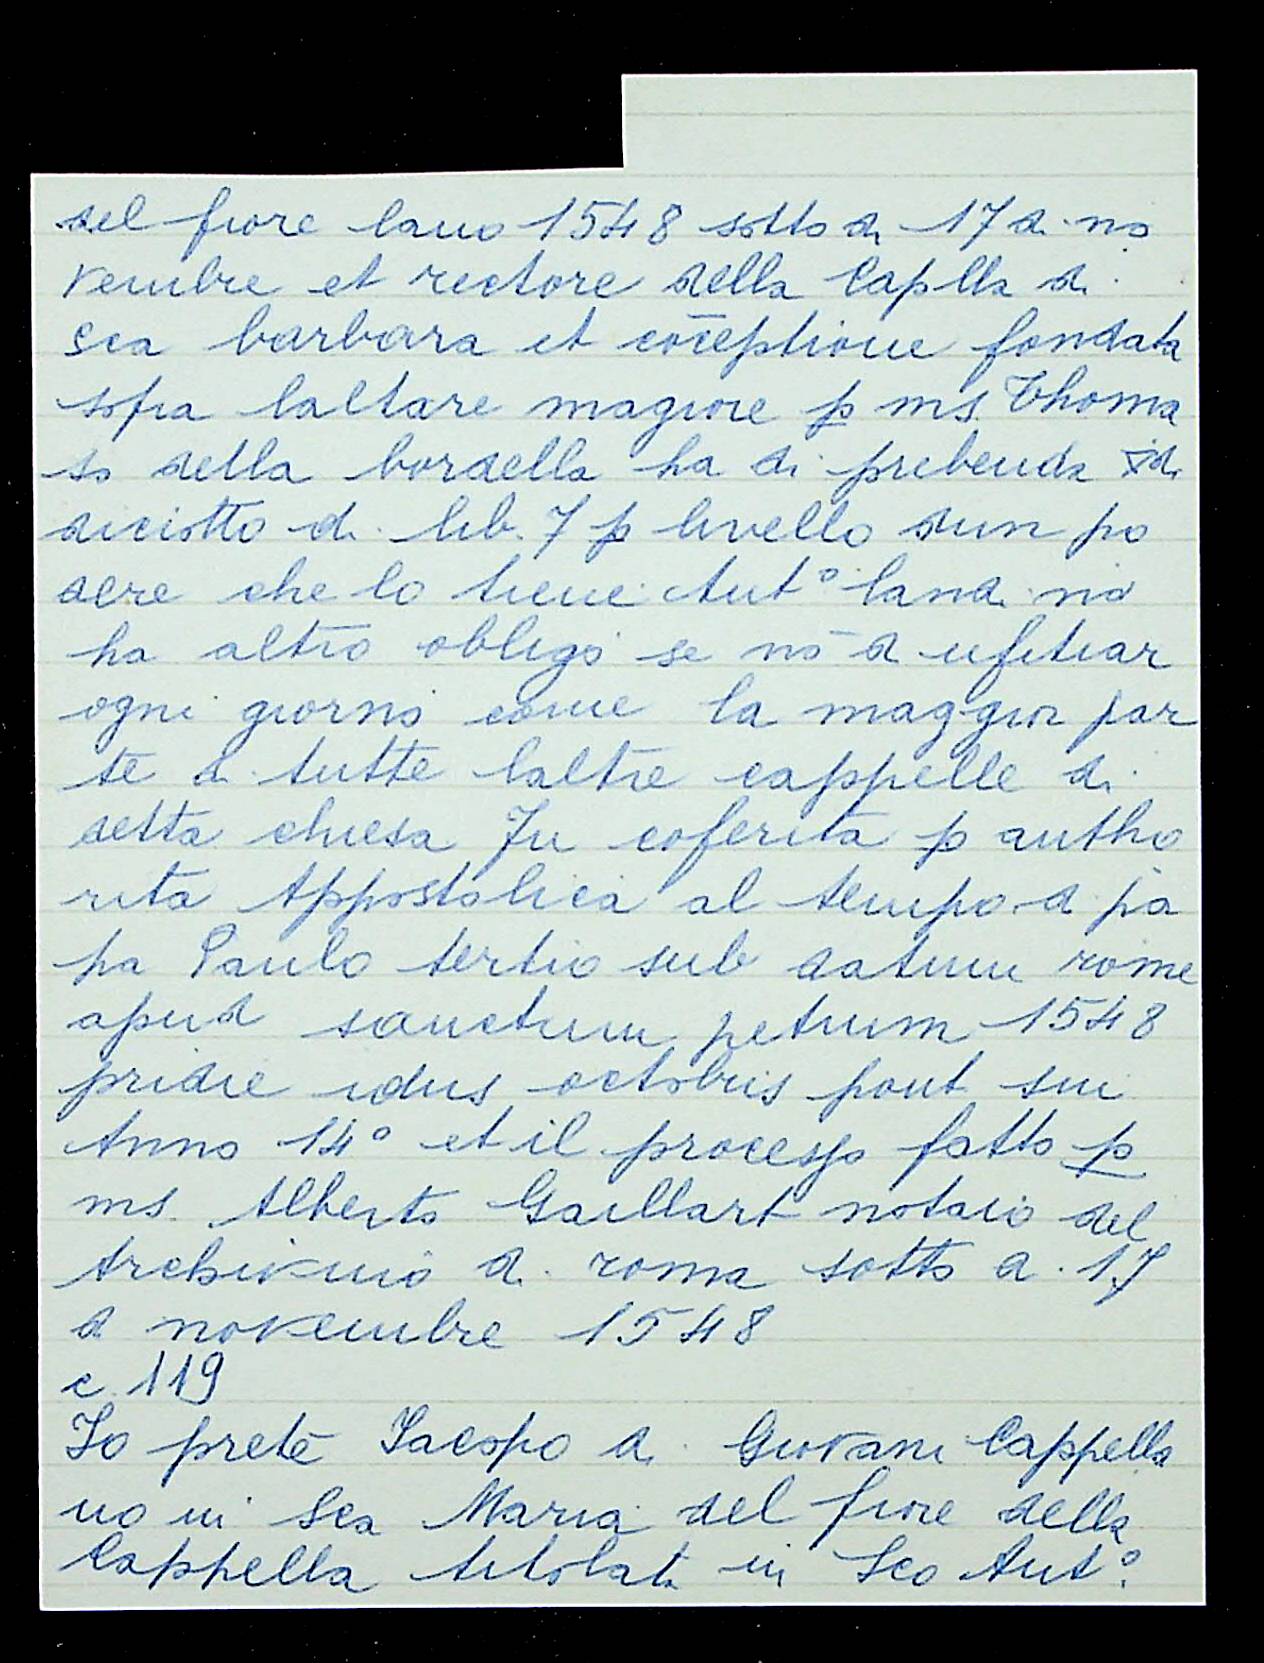 del fiore lano 1548 sotto di 17 di no
vembre et rectore della Caplla di
Sca barbara et cōceptione fondata
sopra laltare magiore p ms. Thoma
so della bordella ha di prebenda
diciotto di lib. 7 p livello dun po
dere che lo tiene Ant° landi nō
ha altro obligo se nō di ufitiar
ogni giorno come la maggior par
te di tutte laltre cappelle di
detta chiesa Fu coferita p autho
rita Appostolica al tempo di pa
pa Paulo tertio sub datum rome
apud sanctum petrum 1548
pridie idus octobris pont sui
Anno 14° et il processo fatto p
ms. Alberto Gaillart notaio del
Archivuio di roma sotto di 17
di novembre 1548
c. 119
Io prete Iacopo di Giovani Cappella
no in Sca Maria del fiore della
Cappella titolata in Sco Ant°.